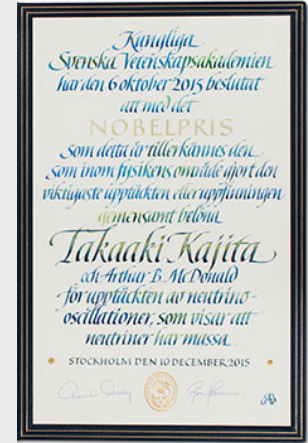 Kungliga
Svenska Vetenskapsakademien
har den 6 oktober 2015 beslutat
att med det
NOBELPRIS
som detta år tillerkännes den
som inom fysikens område gjort den
viktigaste upptäckten eller uppfinningen
gemensamt belöna
Takaaki Kajita
och Arthur B. McDonald
för upptäckten av neutrino-
oscillationer, som visar att
neutriner har massa
STOCKHOLM DEN 10 DECEMBER 2015